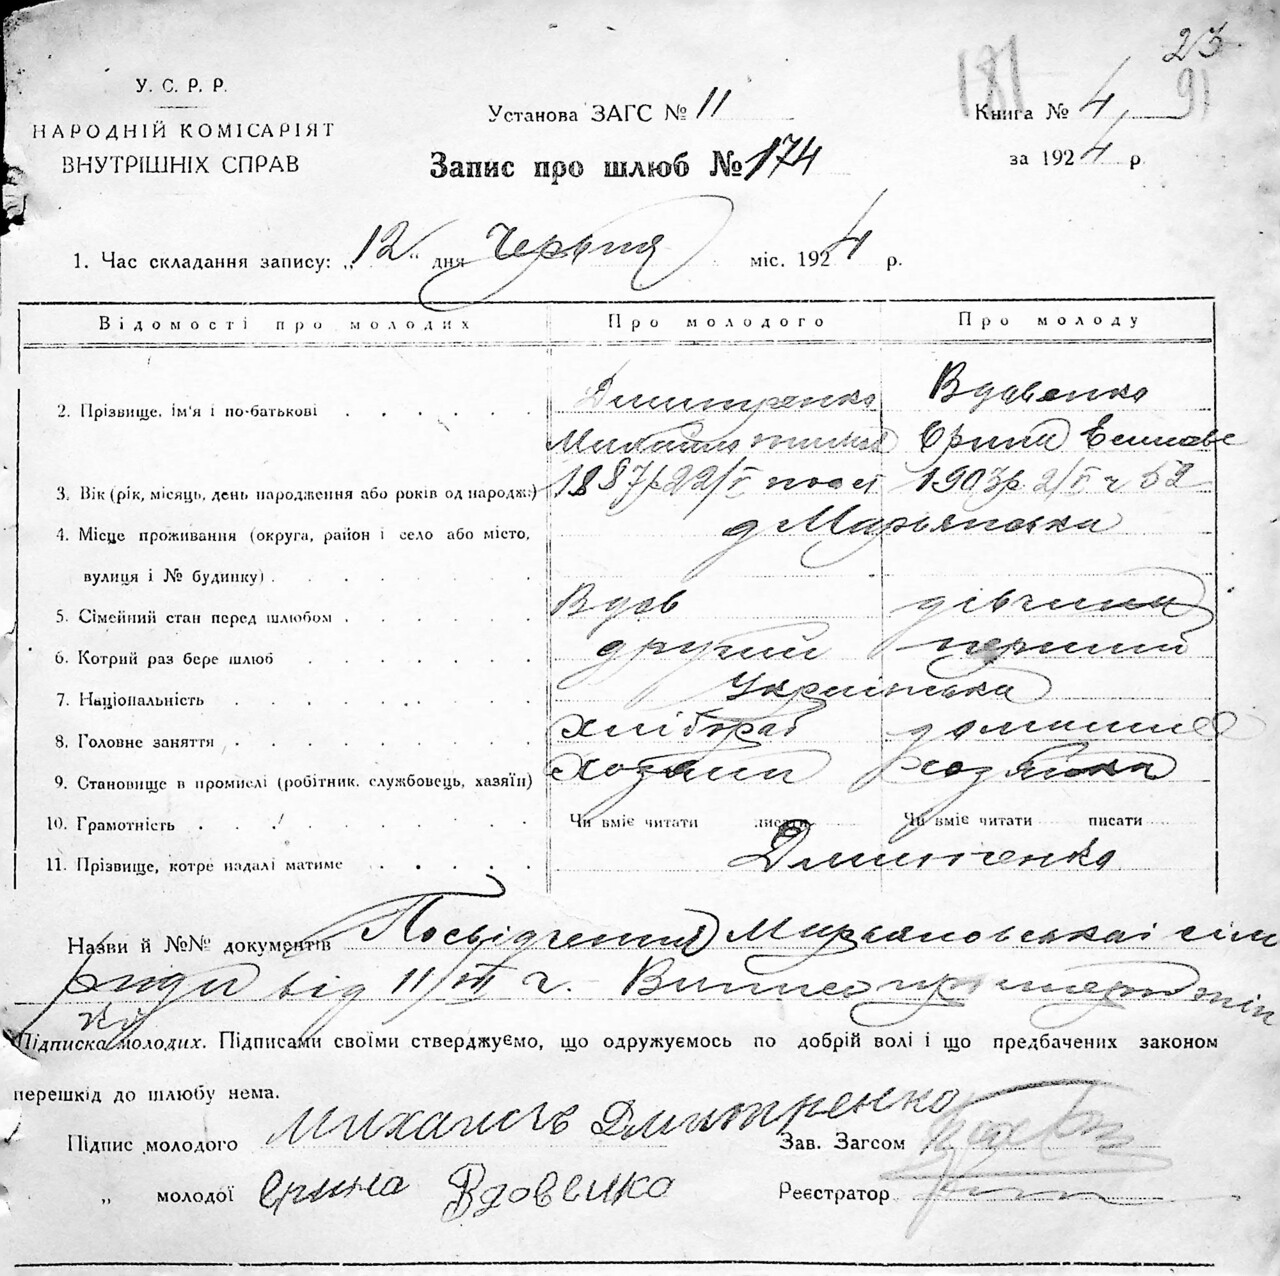 23
181
91
У. С. Р. Р.
НАРОДНІЙ КОМІСАРІЯТ
ВНУТРІШНІХ СПРАВ
Установа ЗАГС № 11
Книга № 4
Запис про шлюб № 174
за 1924 р.
1. Час складання запису: „12" дня Червня міс. 1924 р.
Відомості про молодих Про молодого Про молоду
Дмитренко Вдовенко
2. Прізвище, ім'я і по-батькові
Михайло Ерина
3. Вік (рік, місяць, день народження або років од народж.) 1887р 22/ 1903р 2/
4. Місце проживання (округа, район і село або місто, Марьянська
вулиця і № будинку)
5. Сімейний стан перед шлюбом Вдов дівчина
6. Котрий раз бере шлюб другий перший
7. Національність Українська
8. Головне заняття хлібороб домашнє
9. Становище в промислі (робітник, службовець, хазяїн) хозяин хозяйка
10. Грамотність Чи вміє читати писати Чи вміє читати писати
11. Прізвище, котре надалі матиме Дмитренко
Назви й №№ документів Посвідчення Марьяновськаі сіль
ради від 11/ г.
Підписка молодих. Підписами своїми стверджуємо, що одружуємось по добрій волі і що предбачених законом
перешкід до шлюбу нема.
Підпис молодого Михаилъ Дмитренко Зав. Загсом
„ молодої Ерина Вдовенко Реєстратор